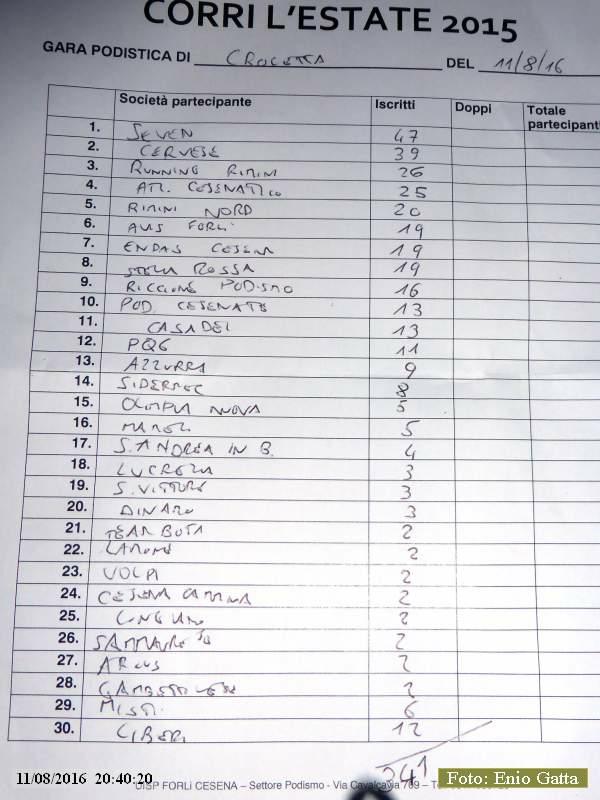 CORRI L'ESTATE 2015
GARA PODISTICA DI CROCETTA DEL 11/8/16
Società partecipante Iscritti Doppi Totale partecipanti
1. SEVEN 47
2. CERVESE 39
3. RUNNING RIMINI 26
4. ATL. CESENATICO 25
5. RIMINI NORD 20
6. AVIS FORLI' 19
7. ENDAS CESENA 19
8. STELLA ROSSA 19
9. RICCIONE PODISMO 16
10. POD. CESENATE 13
11. CASADEI 13
12. PQG 11
13. AZZURRA 9
14. SIDERMEC 8
15. OLIMPIA NUOVA 5
16. 5
17. S. ANDREA IN B. 4
18. LUCREZIA 3
19. S. VITTORE 3
20. DINAMO 3
21. TEAM BOTA 2
22. LAMONE 2
23. VOLPI 2
24. CESENA CAMMINA 2
25. 2
26. 2
27. ARCUS 2
28. GAMBETTOLA 2
29. MISTI 6
30. LIBERI 12
341
UISP FORLÌ CESENA – Settore Podismo - Via Cavalcavia 709 –
11/08/2016 20:40:20
Foto: Enio Gatta